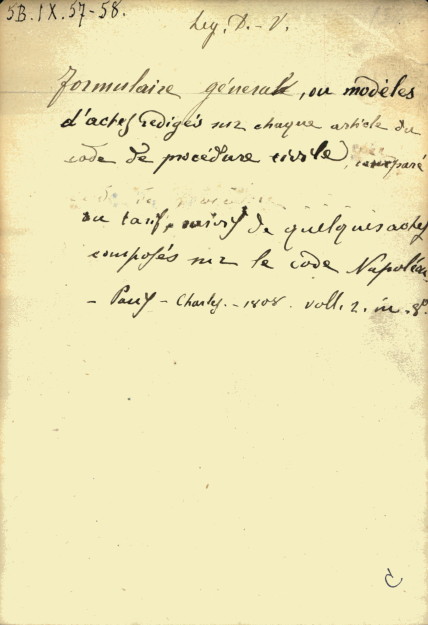 5B.IX.57-58.
Ley. D.-V.
formulaire général, ou modèles
d'actes redigés sur chaque article du
code de procédure civile, comparé
au tarif, suivis de quelques actes
composés sur le code Napoléon
- Paris - Charles. - 1808. voll. 2. in-8º